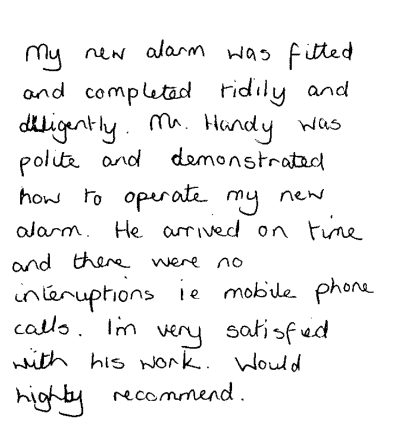 My new alarm was fitted
and completed tidily and
diligently. Mr. Handy was
polite and demonstrated
how to operate my new
alarm. He arrived on time
and there were no
interuptions ie mobile phone
calls. I'm very satisfied
with his work. Would
highly recommend.